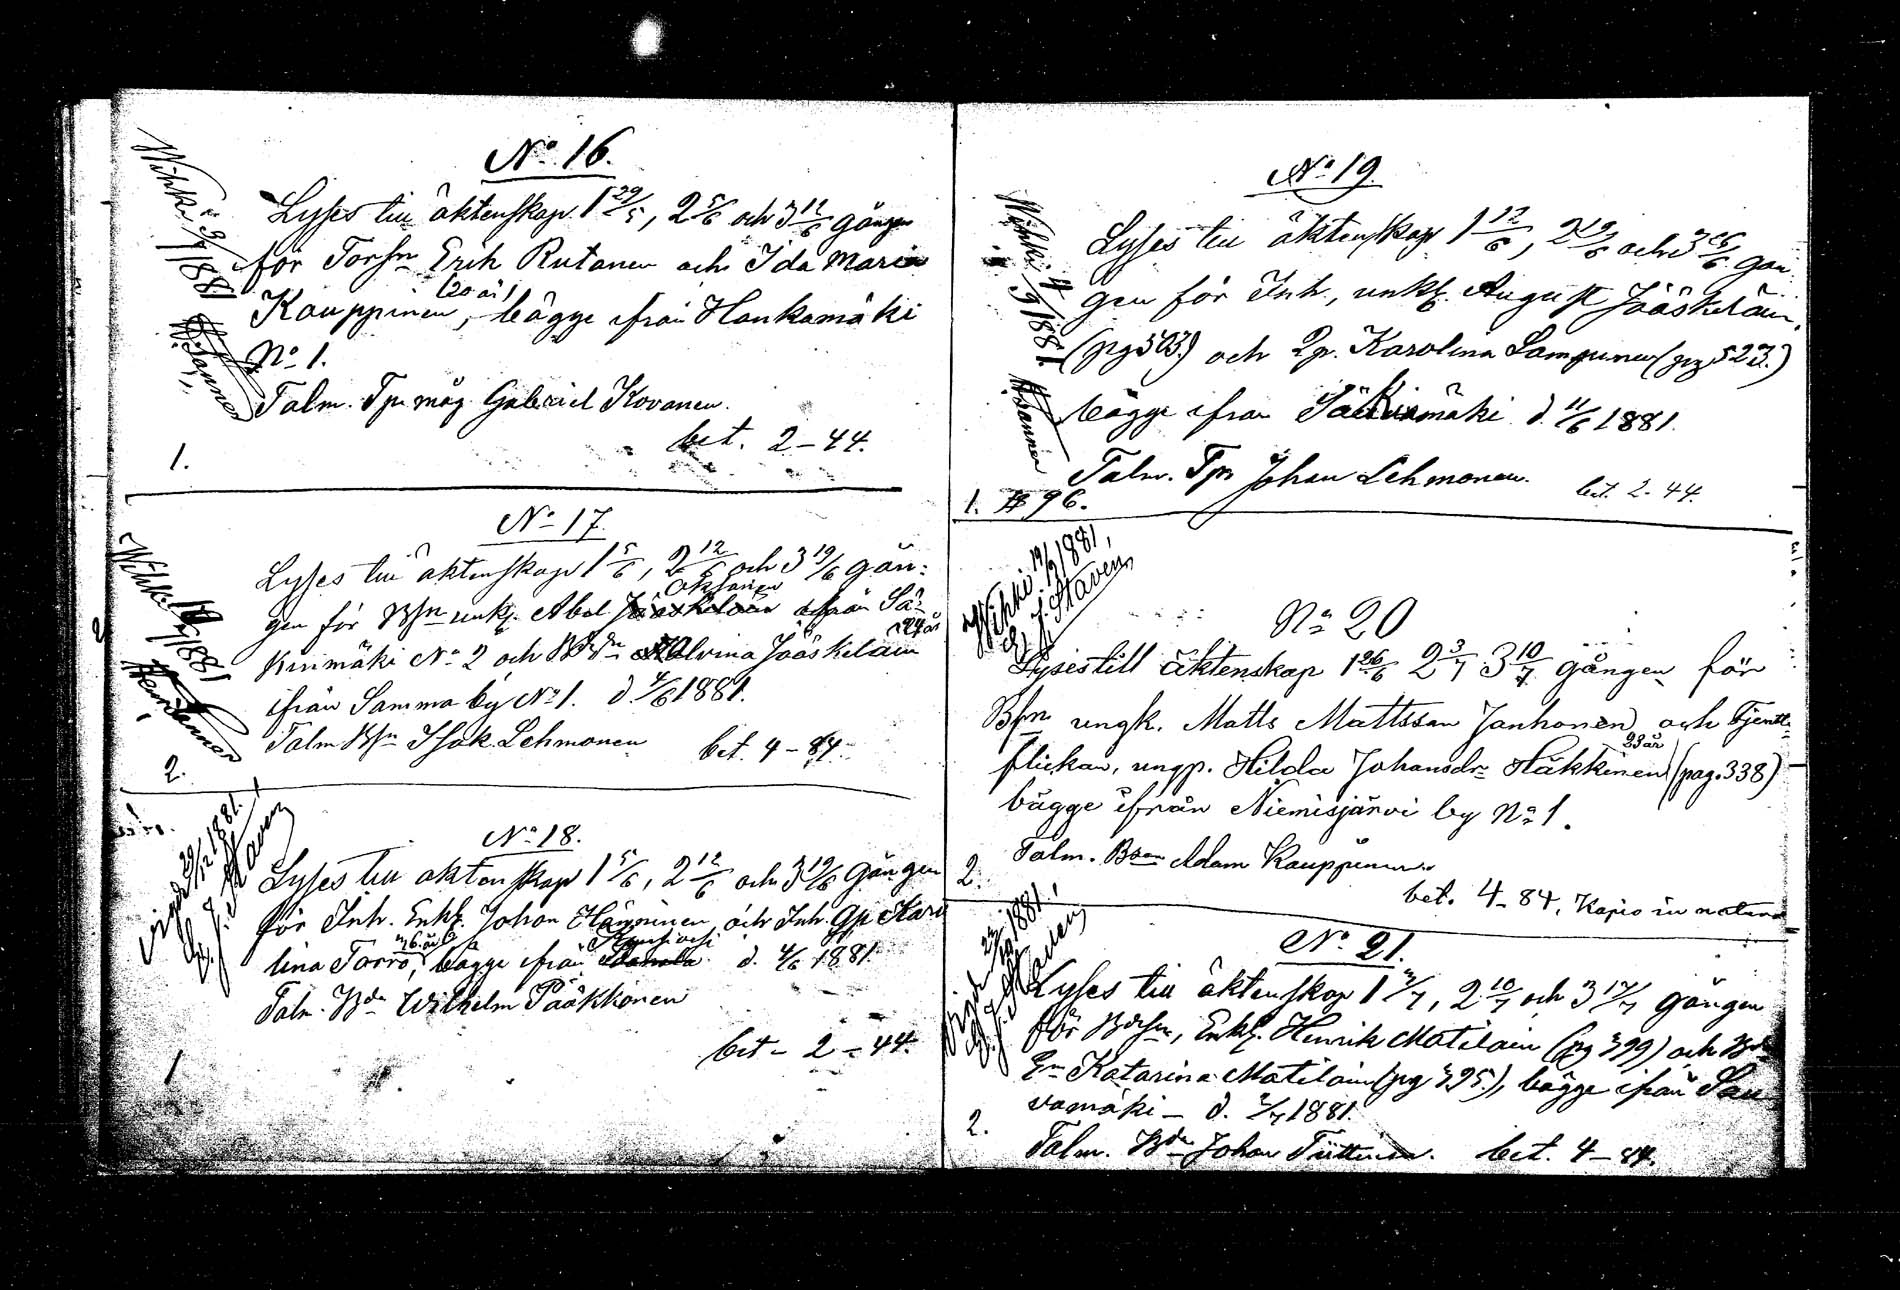 No 16.
Lyses till äktenskap 1 29/5, 2 5/6 och 3 12/6 gången
för Torpsn Erik Rutanen och Ida Maria
(20 år)
Kauppinen, bägge ifrån Hankamäki
No 1.
Talm. Tpr måg Gabriel Kovanen.
bet. 2-44.
1.
Wihki 3/7 1881
No 17.
Lyses till äktenskap 1 5/6, 2 12/6 och 3 19/6 gån-
Oksanen
gen för Bsn unk. Abel Jääskeläin ifrån Sä-
24 år
kinmäki No 2 och Bdr Alvina Jääskeläin
ifrån Samma by No 1. d. 4/6 1881.
Talm Bsn Isak Lehmonen bet. 4-84.
2.
Wihki 1881
No 18.
Lyses till äktenskap 1 5/6, 2 12/6 och 3 19/6 gången
för Inh. Enkl. Johan Hänninen och Inh. Gp Karo
lina Torro, bägge ifrån d. 4/6 1881.
Talm. Bdn Wilhelm Pääkkönen
bet- 2-44.
1
Vigde 29/12 1881.
No 19.
Lyses till äktenskap 1 12/6, 2 19/6 och 3 26/6 gån
gen för Inh, unkl. August Jääskeläin,
(pg 503.) och Qp. Karolina Lampinen (pg 523.)
bägge ifrån Säkinmäki d. 11/6 1881.
Talm. Tpr Johan Lehmonen. bet. 2-44.
1. 96.
Wihki 4/9 1881.
Wihki 1881,
J. Staven
No 20
Lyses till äktenskap 1 26/6 2 3/7 3 10/7 gången för
Bsn ungk. Matts Mattsson Janhonen och Tjenste
23 år
flickan, ungp. Hilda Johansdr Häkkinen (pag. 338)
bägge ifrån Niemisjärvi by No 1.
Talm. Bsn Adam Kauppinen
2.
bet. 4-84, Kapio in natura
No 21.
Lyses till äktenskap 1 3/7, 2 10/7 och 3 17/7 gången
för Bdsn, Enkl. Henrik Matilain (pg 399) och Bd
En Katarina Matilain (pg 395), bägge ifrån Sau
vamäki - d. 2/7 1881.
2.
Talm. Bdn Johan Tiittinen. bet. 4-84.